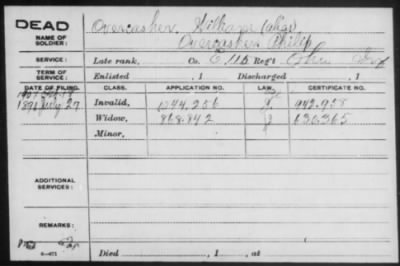 DEAD
NAME OF SOLDIER:
Overcasher William (alias)
Overcasher Philip
SERVICE:
Late rank, Co. E 116 Reg't Ohio Inf
TERM OF SERVICE:
Enlisted , 1 Discharged , 1
DATE OF FILING. CLASS. APPLICATION NO. LAW. CERTIFICATE NO.
Invalid, 1044.256 942.958
1891 July 27 Widow, 868.842 630.365
Minor,
ADDITIONAL SERVICES:
REMARKS:
6-471
Died , 1 , at